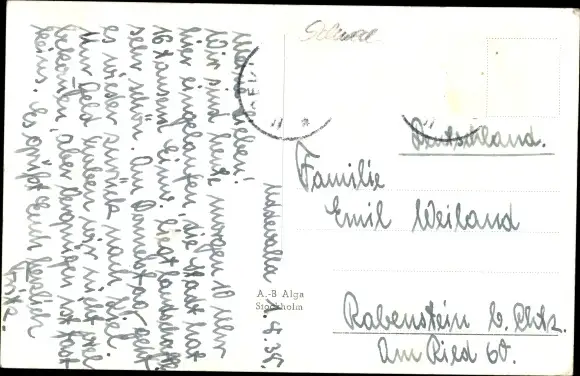 Uddevalla 1.9.35.
Meine Lieben!
Wir sind heute morgen 10 Uhr
hier eingelaufen, die Stadt hat
16 tausend Einw. liegt landschaftl.
sehr schön. Am Donnerstag geht
es wieder zurück nach Kiel.
Nur Geld haben wir nicht viel
bekommen, aber Vergnügen ist fast
keins. Es grüßt Euch herzlich
Fritz.
A.-B Alga
Stockholm
Deutschland.
Familie
Emil Weiland
Rabenstein b. Chtz.
Am Ried 60.